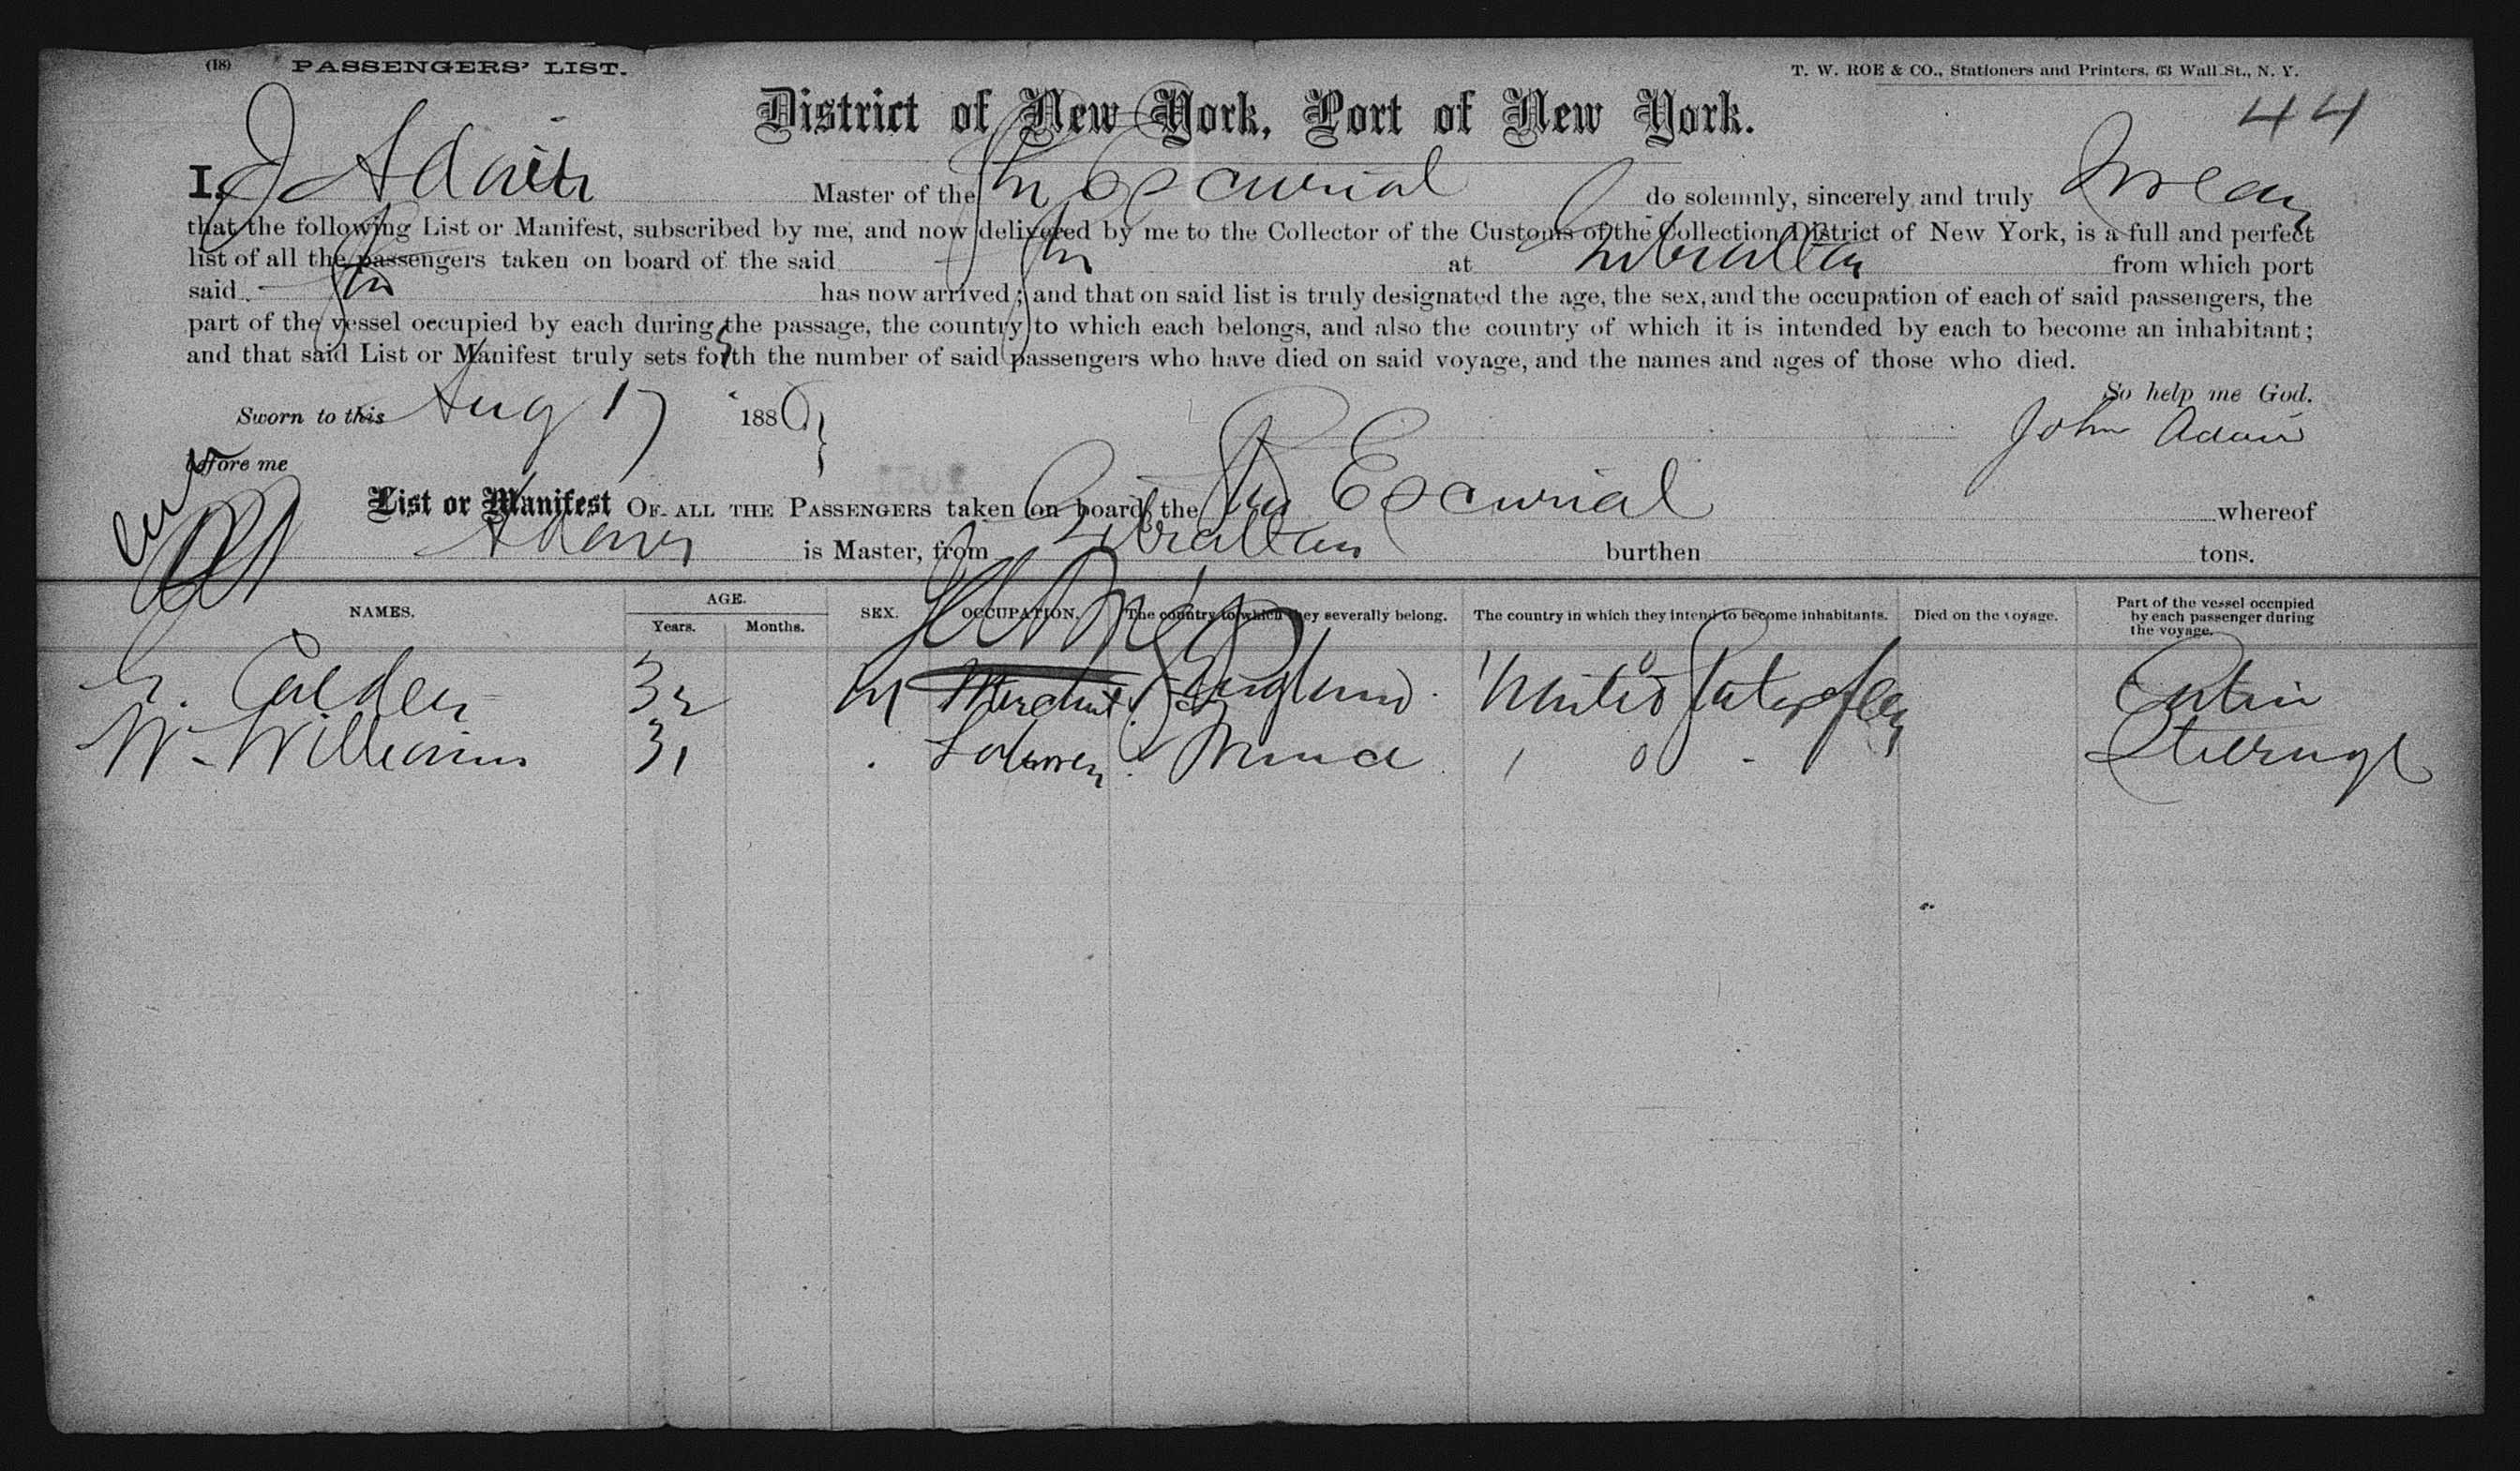 (18) PASSENGERS' LIST.
T. W. ROE & CO., Stationers and Printers, 63 Wall St., N. Y.
44
District of New York, Port of New York.
I, J Adair Master of the Escurial do solemnly, sincerely and truly Swear
that the following List or Manifest, subscribed by me, and now delivered by me to the Collector of the Customs of the Collection District of New York, is a full and perfect
list of all the passengers taken on board of the said at Gibraltar from which port
said has now arrived; and that on said list is truly designated the age, the sex, and the occupation of each of said passengers, the
part of the vessel occupied by each during the passage, the country to which each belongs, and also the country of which it is intended by each to become an inhabitant;
and that said List or Manifest truly sets forth the number of said passengers who have died on said voyage, and the names and ages of those who died.
So help me God.
Sworn to this Aug 17 1886
John Adair
before me
List or Manifest OF ALL THE PASSENGERS taken on board the Escurial whereof
Adair is Master, from Gibraltar burthen tons.
NAMES. AGE. Years. Months. SEX. OCCUPATION. The country to which they severally belong. The country in which they intend to become inhabitants. Died on the voyage. Part of the vessel occupied by each passenger during the voyage.
G. Calder 32 M Merchant England United States of Am Cabin
W. Williams 31 Steerage